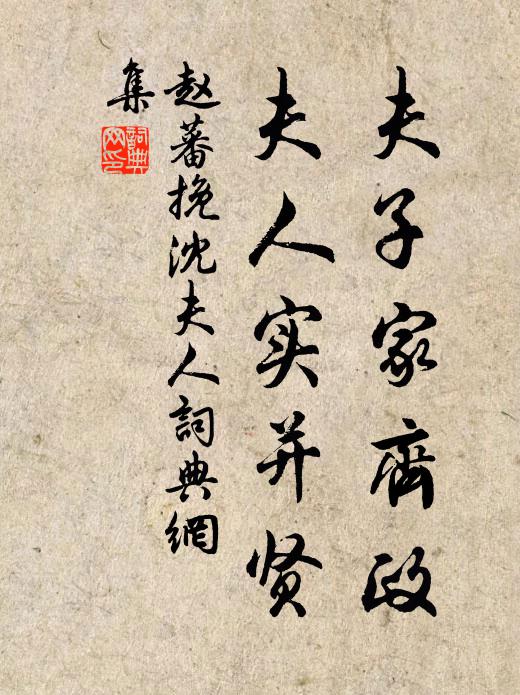 夫子家齊政
夫人实并贤
赵蕃挽沈夫人詞典網
集
詞典
网印